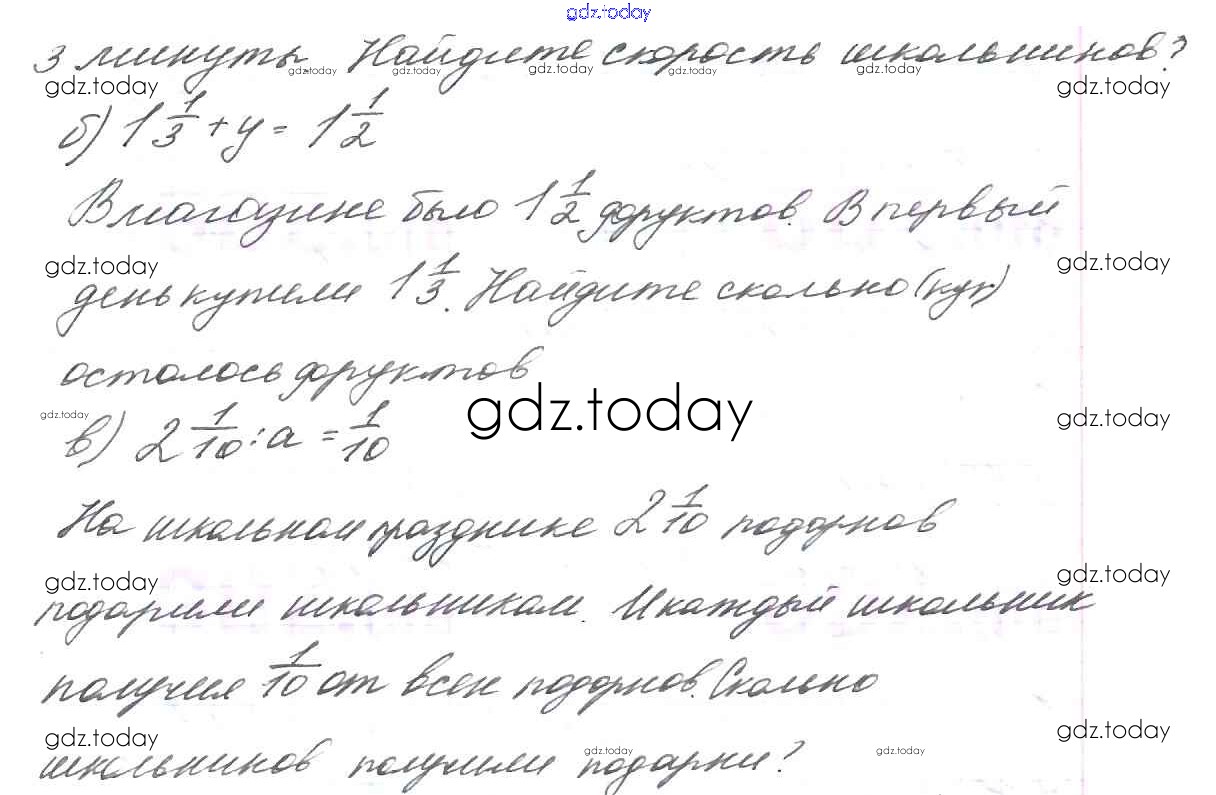 gdz.today
3 минуты. Найдите скорость школьников?
gdz.today gdz.today gdz.today gdz.today gdz.today
gdz.today gdz.today
б) 1 1/3 + y = 1 1/2
В магазине было 1 1/2 фруктов. В первый
gdz.today gdz.today
день купили 1 1/3. Найдите сколько (кук)
осталось фруктов
gdz.today gdz.today gdz.today
в) 2 1/10 : a = 1/10
На школьном празднике 2 1/10 подарков
gdz.today gdz.today
подарили школьникам. И каждый школьник
получил 1/10 от всех подарков. Сколько
gdz.today gdz.today
школьников получили подарки?
gdz.today gdz.today